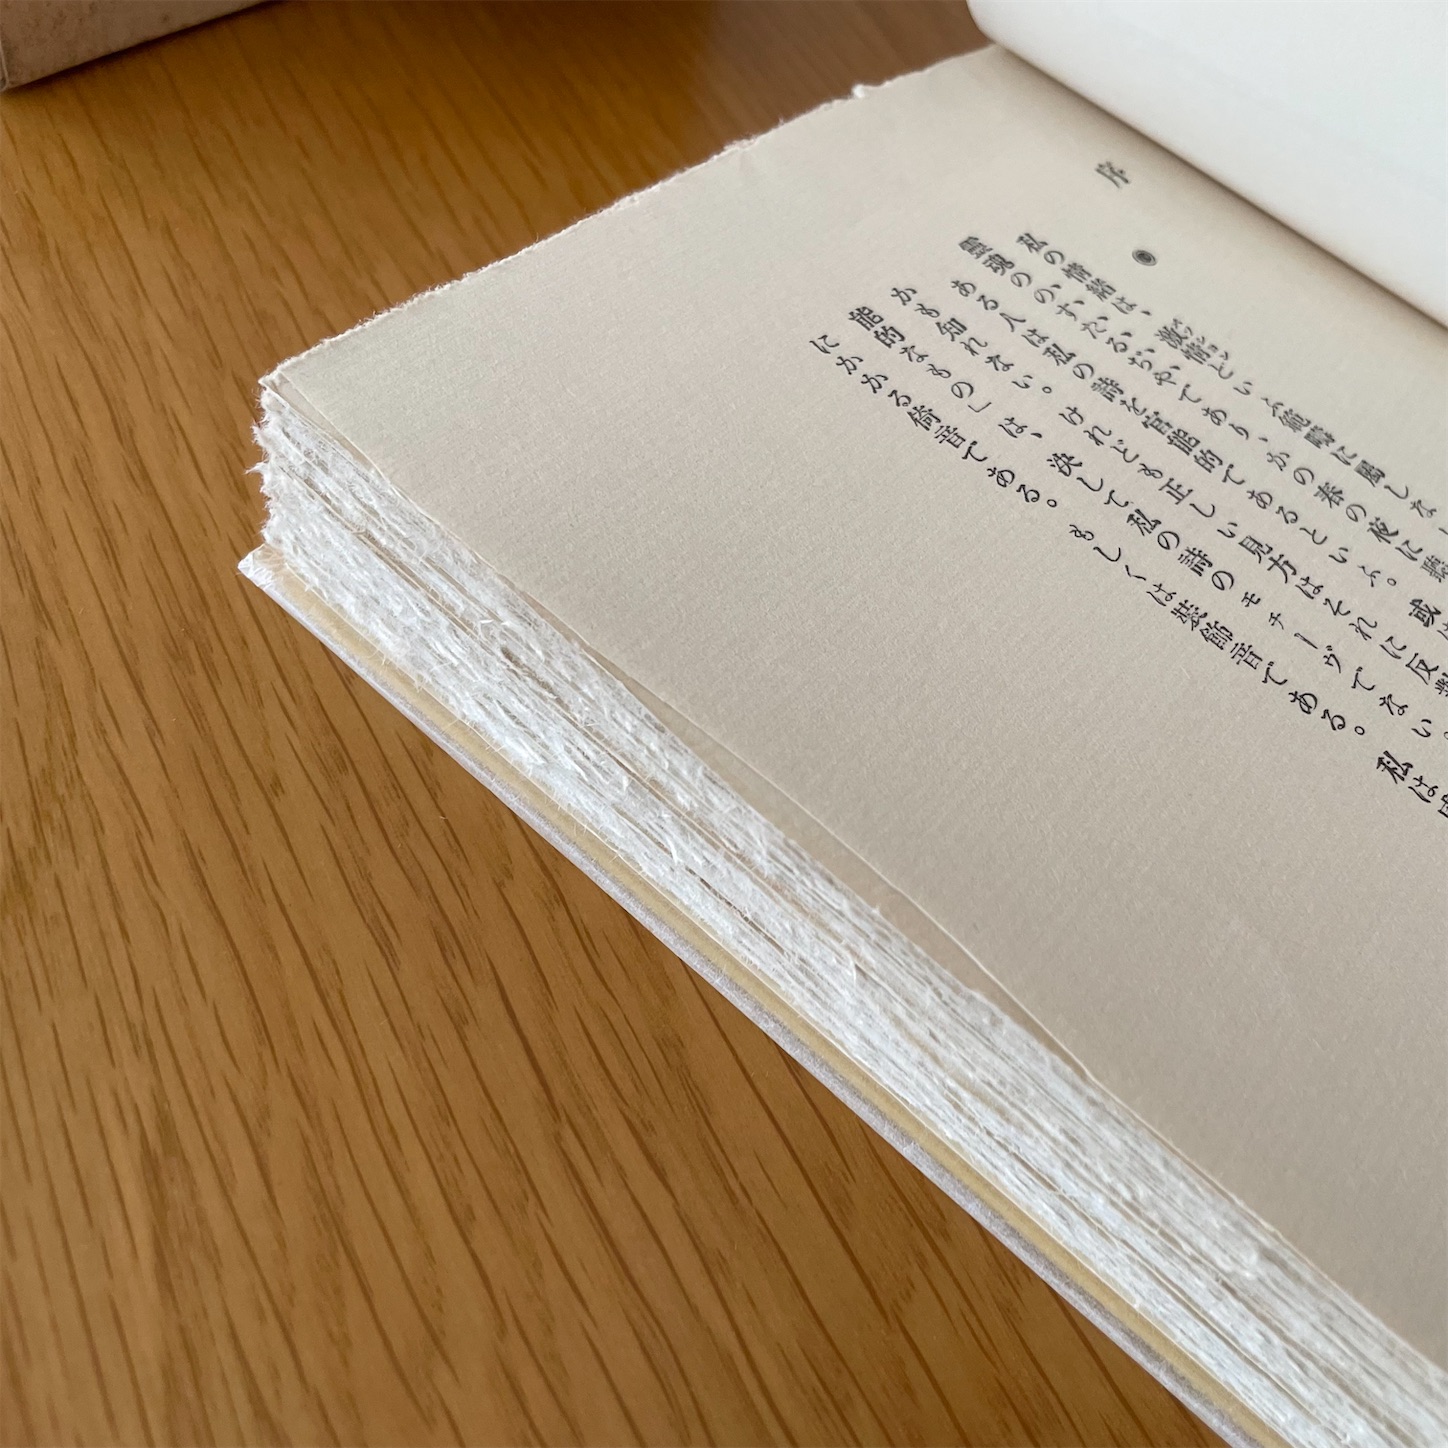 序
◉
私の情緒は、激情といふ範疇に屬しな
パツシヨン
靈魂ののすたるぢやであり、かの春の夜に聽
ある人は私の詩を官能的であるといふ。或
かも知れない。けれども正しい見方はそれに反對
能的なもの」は、決して私の詩のモチーヴでない。
にかかる倚音である。もしくは裝飾音である。私は